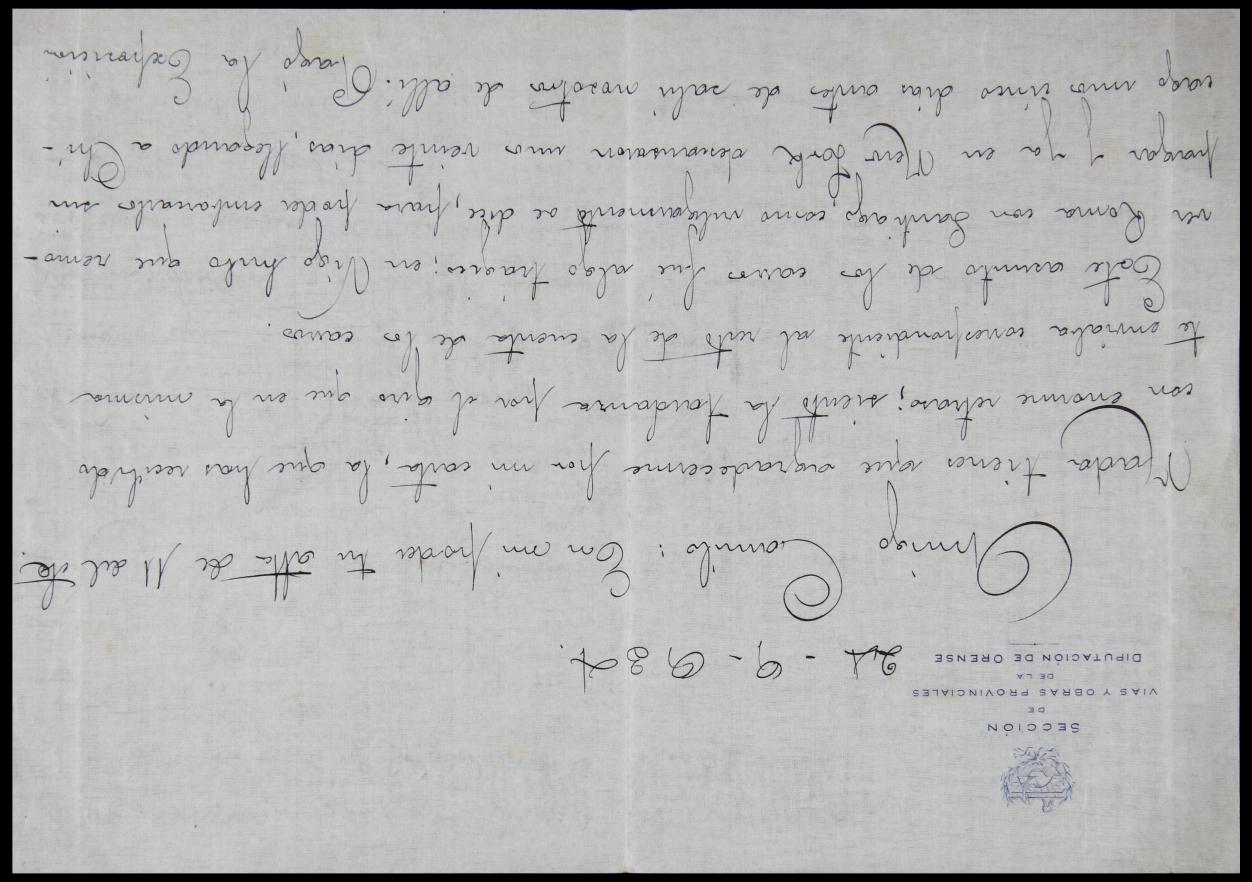 SECCIÓN
DE
VIAS Y OBRAS PROVINCIALES
DE LA
DIPUTACIÓN DE ORENSE
24 - 9 - 934.
Amigo Camilo: En mi poder tu atta de 11 del cte.
Nada tienes que agradecerme por mi carta, la que has recibido
con enorme retraso; siento la tardanza por el giro que en la misma
te enviaba correspondiente al resto de la cuenta de los
Este asunto de los fué algo trágico; en Vigo hubo que remo-
ver Roma con Santiago, como vulgarmente se dice, para poder embarcarlos sin
pagar y ya en New York descansaron unos veinte dias, llegando a Chi-
cago unos cinco dias antes de salir nosotros de allí. Pagó la Exposición